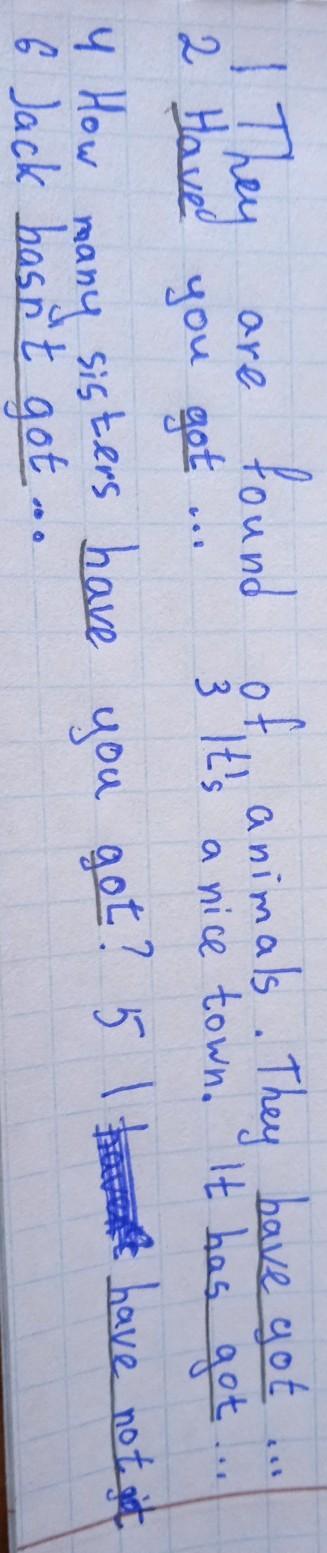 1 They are found of animals. They have got ...
2 Have you got ... 3 It's a nice town. It has got ...
4 How many sisters have you got? 5 I have not
6 Jack hasn't got ...